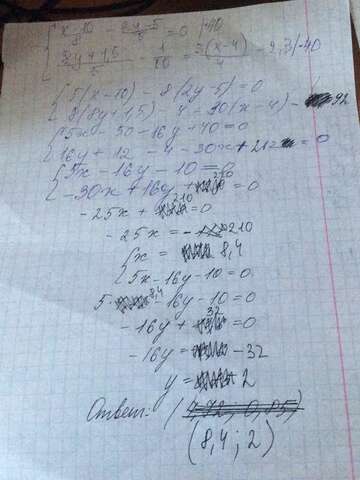 { (x-10)/8 - (2y-5)/5 = 0 |·40
(2y+1,5)/5 - 1/10 = 3(x-4)/4 - 2,3 |·40
{ 5(x-10) - 8(2y-5) = 0
8(2y+1,5) - 4 - 30(x-4) - 92
{ 5x - 50 - 16y + 40 = 0
16y + 12 - 4 - 30x + 212 = 0
{ 5x - 16y - 10 = 0
-30x + 16y + 210 = 0
-25x + 210 = 0
-25x = -210
{ x = 8,4
5x - 16y - 10 = 0
5·8,4 - 16y - 10 = 0
-16y + 32 = 0
-16y = -32
y = 2
Ответ: (4,72; 0,85)
(8,4; 2)